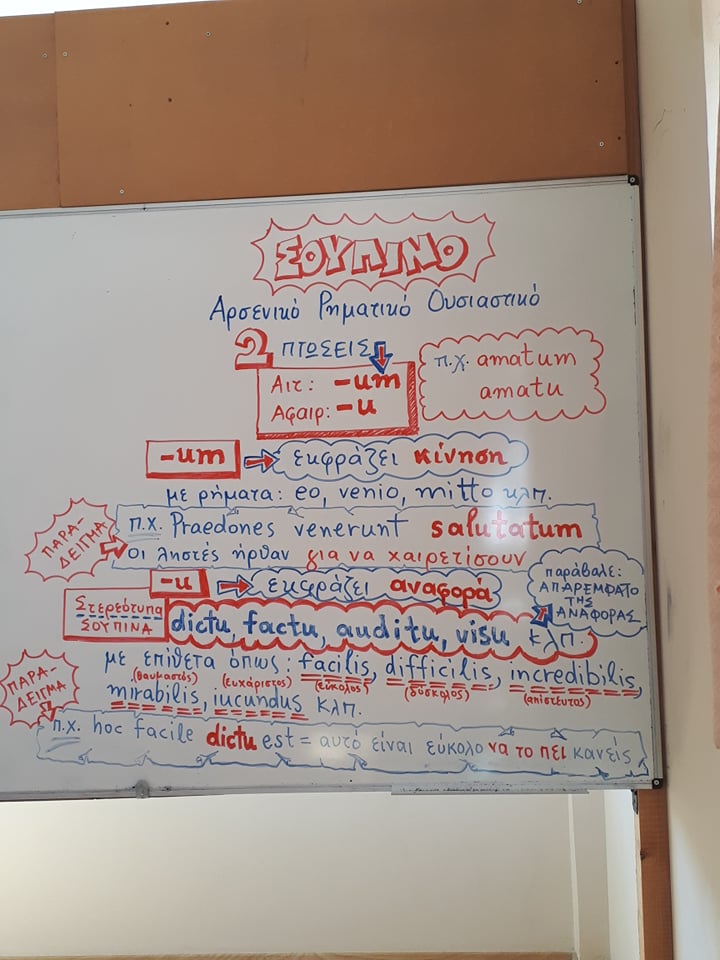 ΣΟΥΠΙΝΟ
Αρσενικό Ρηματικό Ουσιαστικό
2 ΠΤΩΣΕΙΣ
Αιτ: -um
Αφαιρ: -u
π.χ. amatum
amatu
-um εκφράζει κίνηση
με ρήματα: eo, venio, mitto κλπ.
ΠΑΡΑ-
ΔΕΙΓΜΑ
π.χ. Praedones venerunt salutatum
οι ληστές ήρθαν για να χαιρετίσουν
-u εκφράζει αναφορά
παράβαλε:
ΑΠΑΡΕΜΦΑΤΟ
ΤΗΣ
ΑΝΑΦΟΡΑΣ
Στερεότυπα
ΣΟΥΠΙΝΑ
dictu, factu, auditu, visu κλπ.
με επίθετα όπως: facilis, difficilis, incredibilis,
(θαυμαστός) (ευχάριστος) (εύκολος) (δύσκολος) (απίστευτος)
mirabilis, iucundus κλπ.
ΠΑΡΑ-
ΔΕΙΓΜΑ
π.χ. hoc facile dictu est = αυτό είναι εύκολο να το πει κανείς